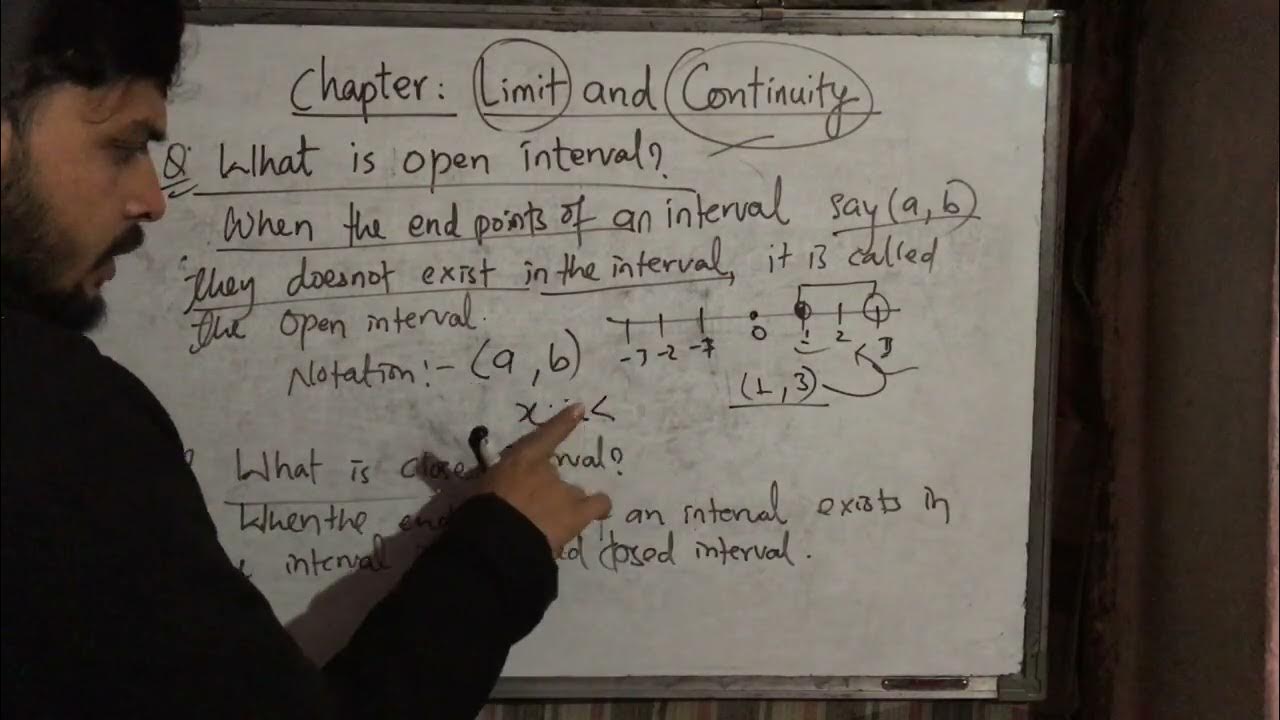 Chapter: Limit and Continuity
Q. What is open interval?
When the end points of an interval say (a, b)
they doesnot exist in the interval, it is called
the open interval.
-3 -2 0 1 2 3
Notation:- (a, b)
(1, 3)
x <
What is close
When the end an interval exists in
interval closed interval.